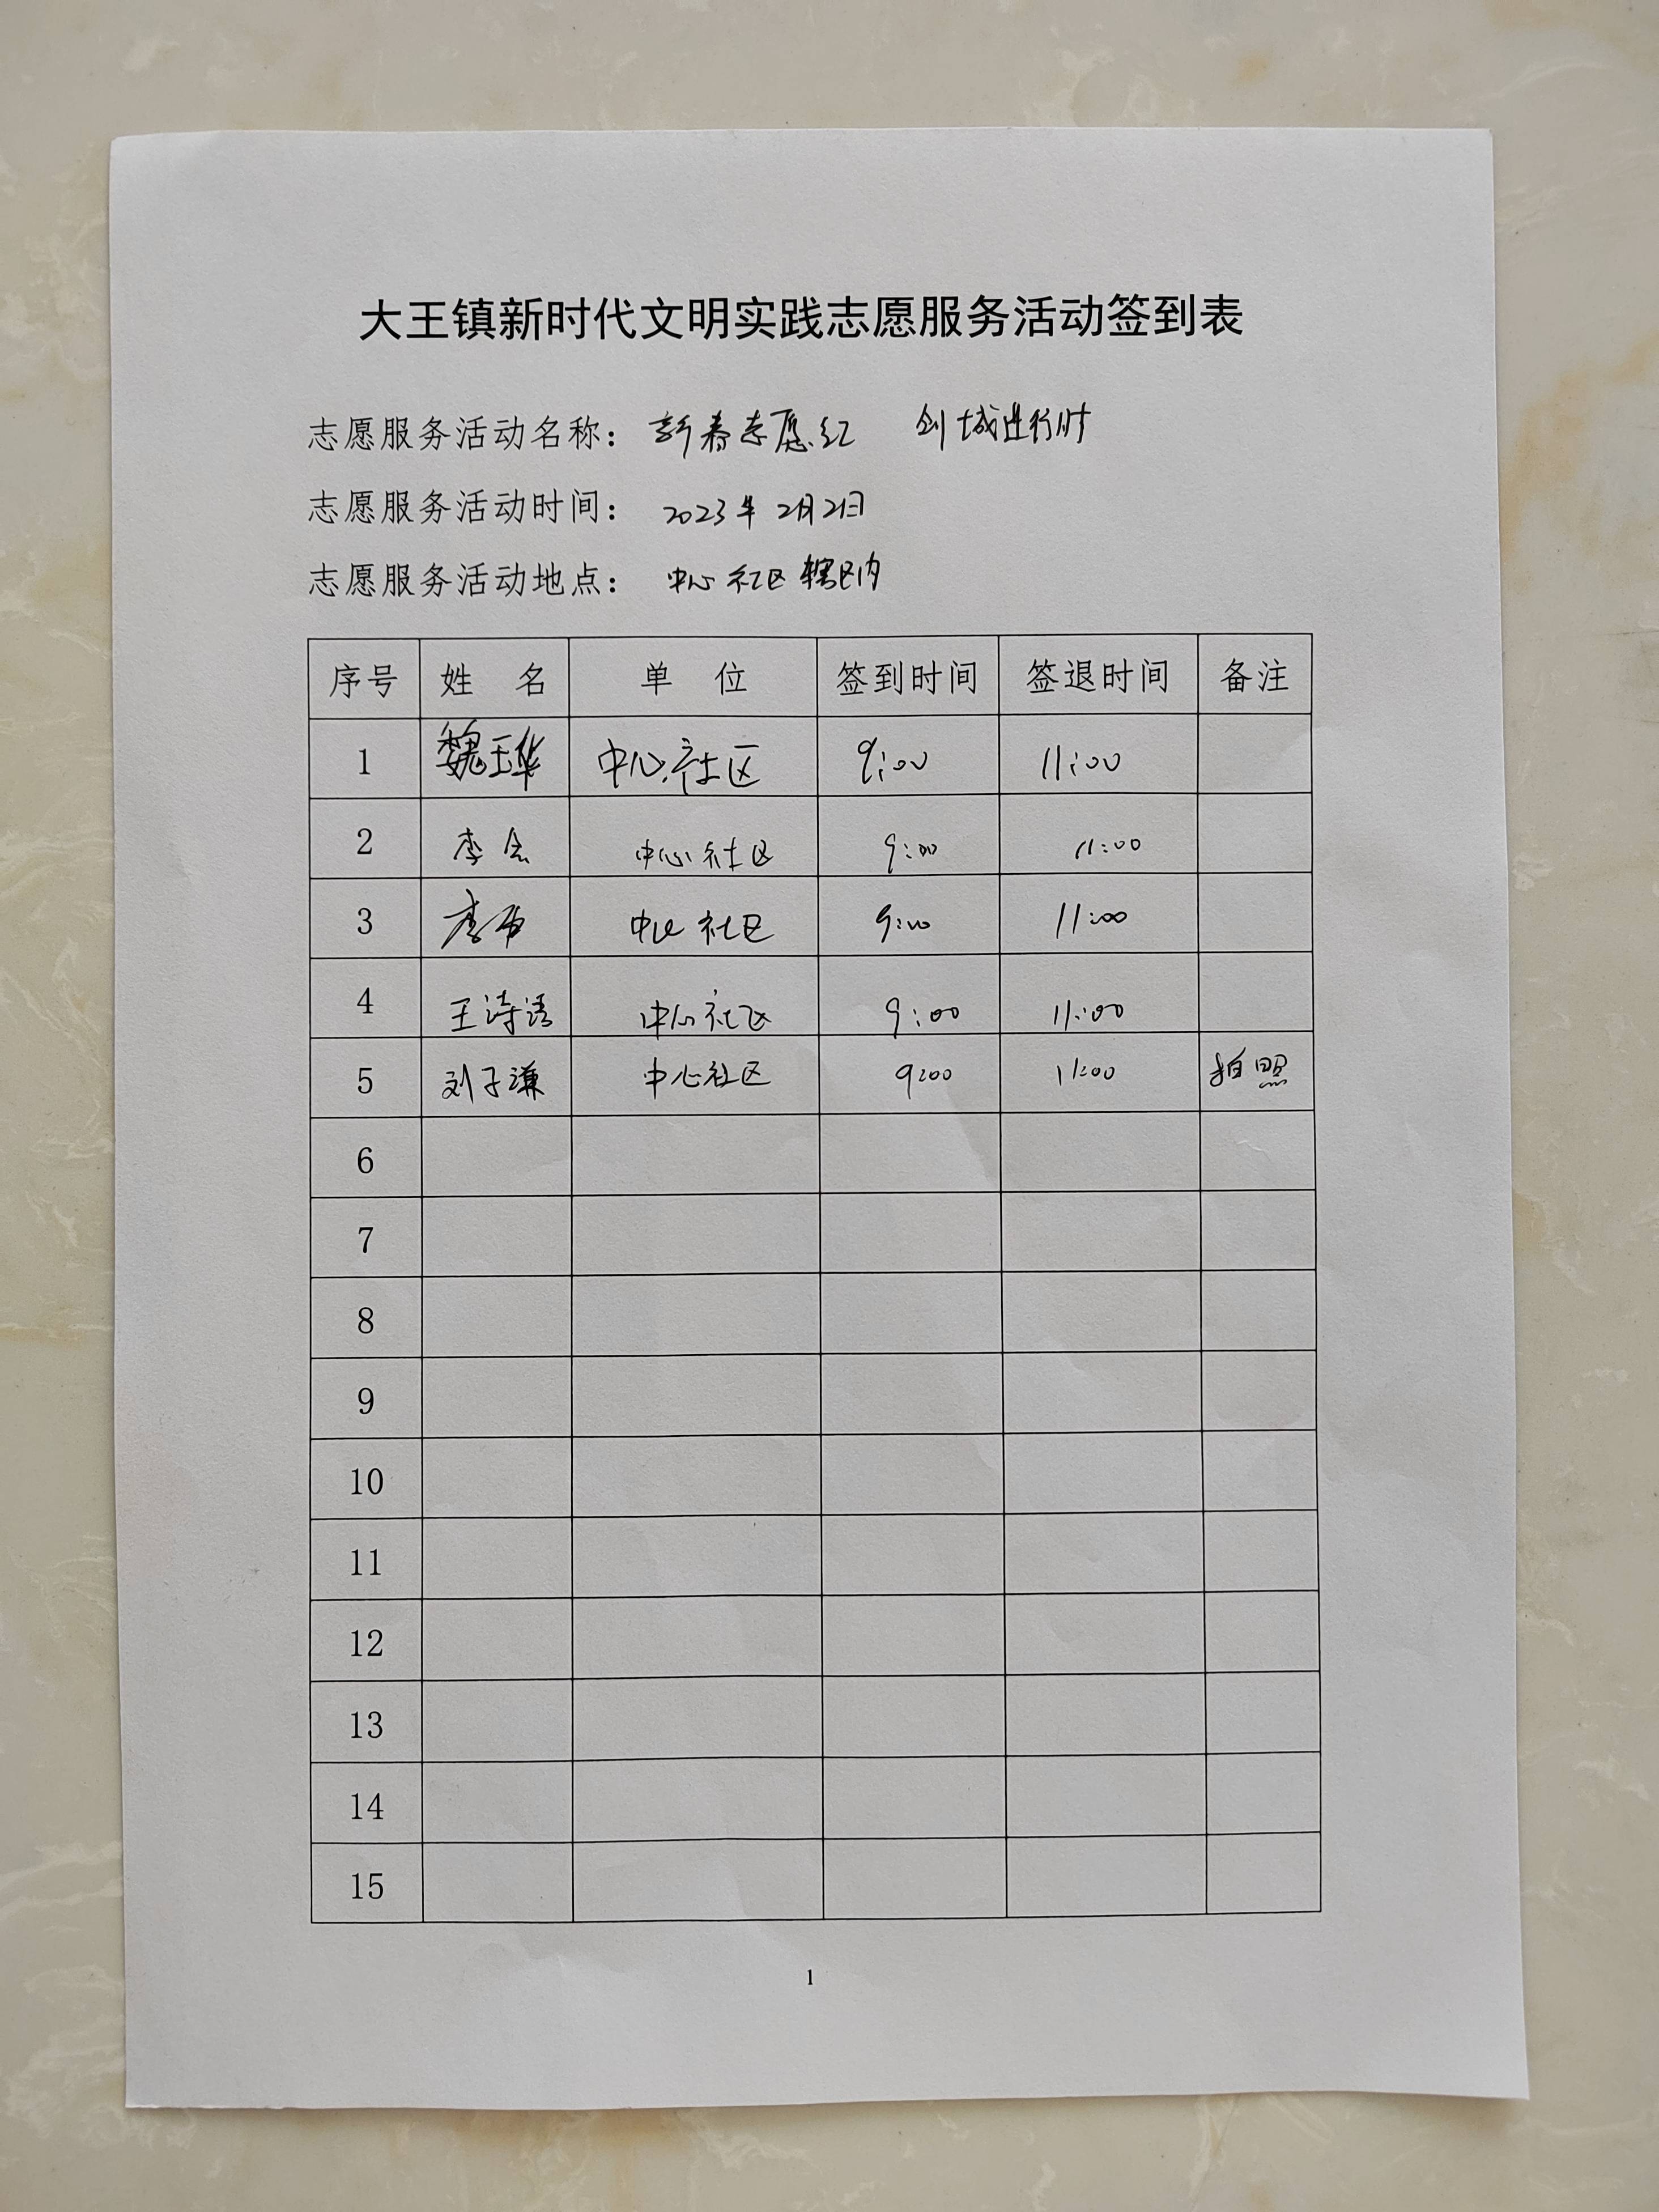 大王镇新时代文明实践志愿服务活动签到表
志愿服务活动名称：新春志愿红 创城进行时
志愿服务活动时间：2023年2月2日
志愿服务活动地点：中心社区辖区内
序号 姓名 单位 签到时间 签退时间 备注
1 魏玉华 中心社区 9:00 11:00
2 李会 中心社区 9:00 11:00
3 李 中心社区 9:00 11:00
4 王诗语 中心社区 9:00 11:00
5 刘子谦 中心社区 9:00 11:00 拍照
6
7
8
9
10
11
12
13
14
15
1